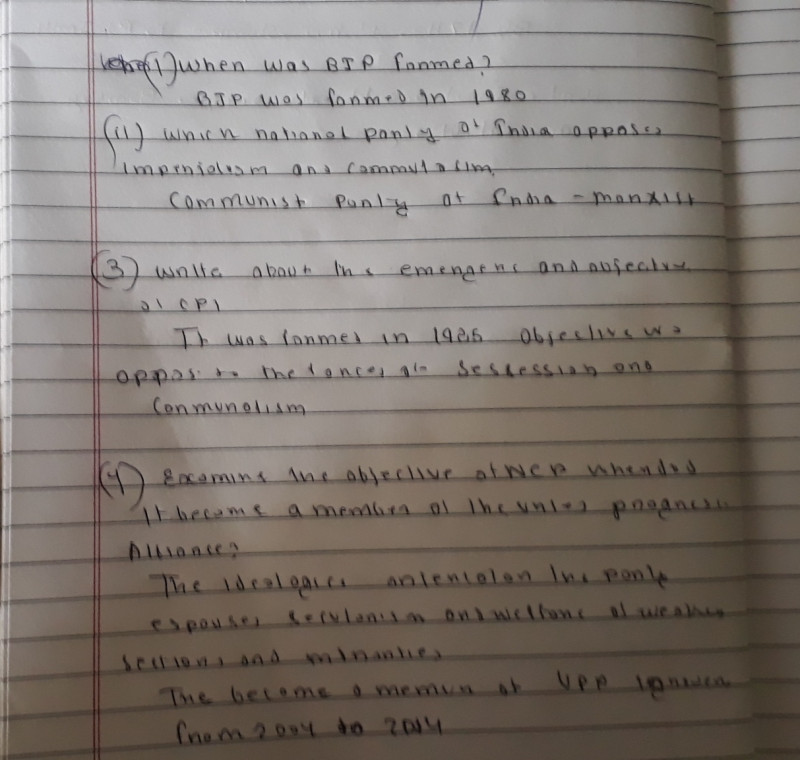 (1) When was BJP formed?
BJP was formed in 1980
(ii) Which national party of India opposes
imperialism and
Communist Party of India - Marxist
(3) Write about the emergenc and objective
of CPI
It was formed in 1925 objective was
oppos to the forces of Sessession and
Conmunalism
(4) Examins the objective of NCP when did
it become a member of the united progressi
Alliance?
The the party
espouses secularism and welfare of weaker
sections and minorities
The become a member of UPP
from 2004 to 2014